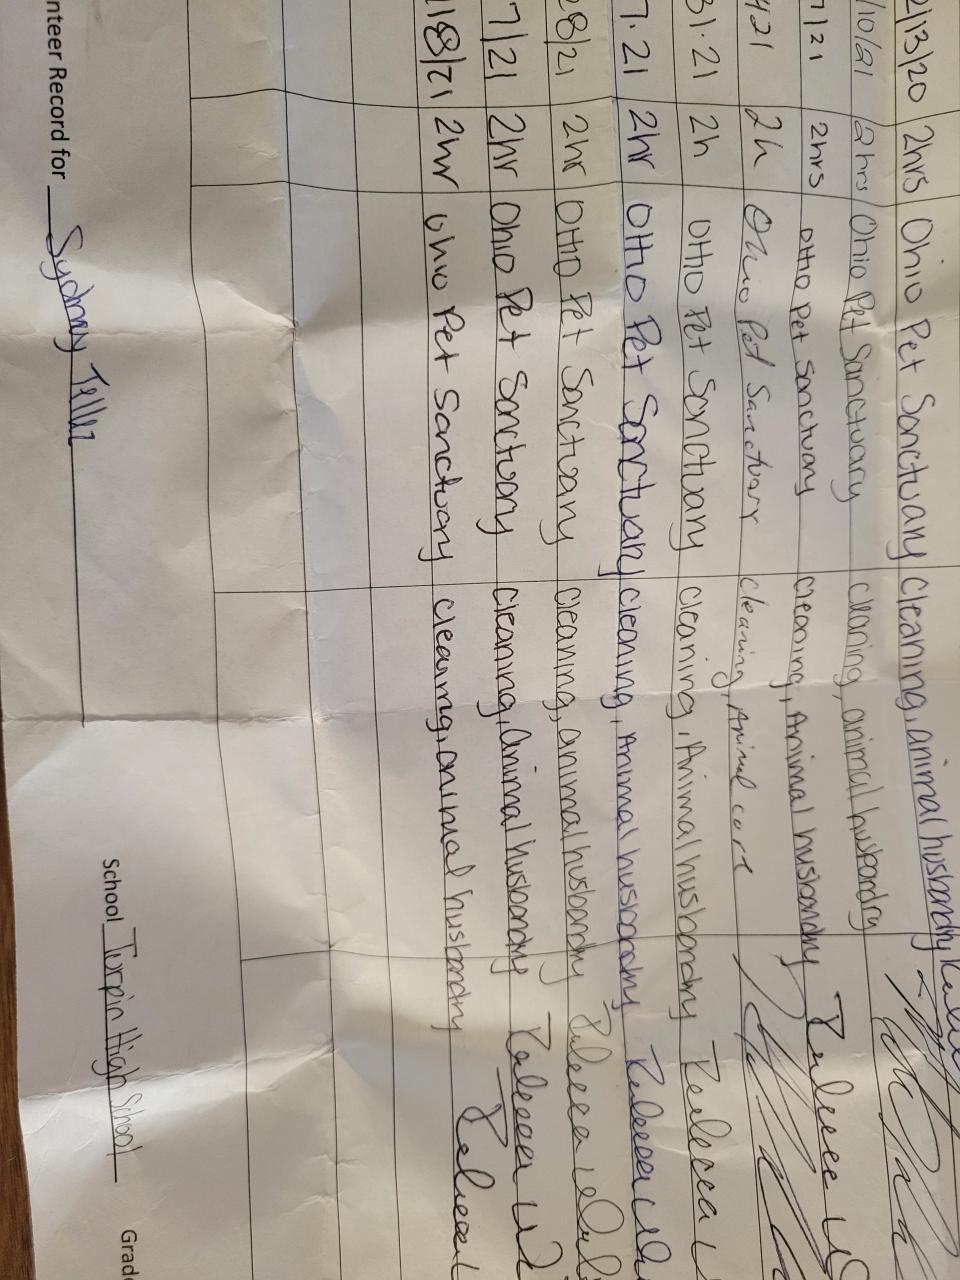 2/13/20 2hrs Ohio Pet Sanctuary cleaning, animal husbandry
/10/21 2hrs Ohio Pet Sanctuary cleaning, animal husbandry
7/21 2hrs Ohio Pet Sanctuary cleaning, Animal husbandry
421 2h Ohio Pet Sanctuary cleaning, Animal care
31.21 2h Ohio Pet Sanctuary cleaning, Animal husbandry Rebecca
7.21 2hr Ohio Pet Sanctuary cleaning, Animal husbandry Rebecca
28/21 2hr Ohio Pet Sanctuary cleaning, animal husbandry Rebecca
7/21 2hr Ohio Pet Sanctuary cleaning, animal husbandry Rebecca
18/21 2hr Ohio Pet Sanctuary cleaning, animal husbandry Rebecca
nteer Record for Sydney School Turpin High School Grade